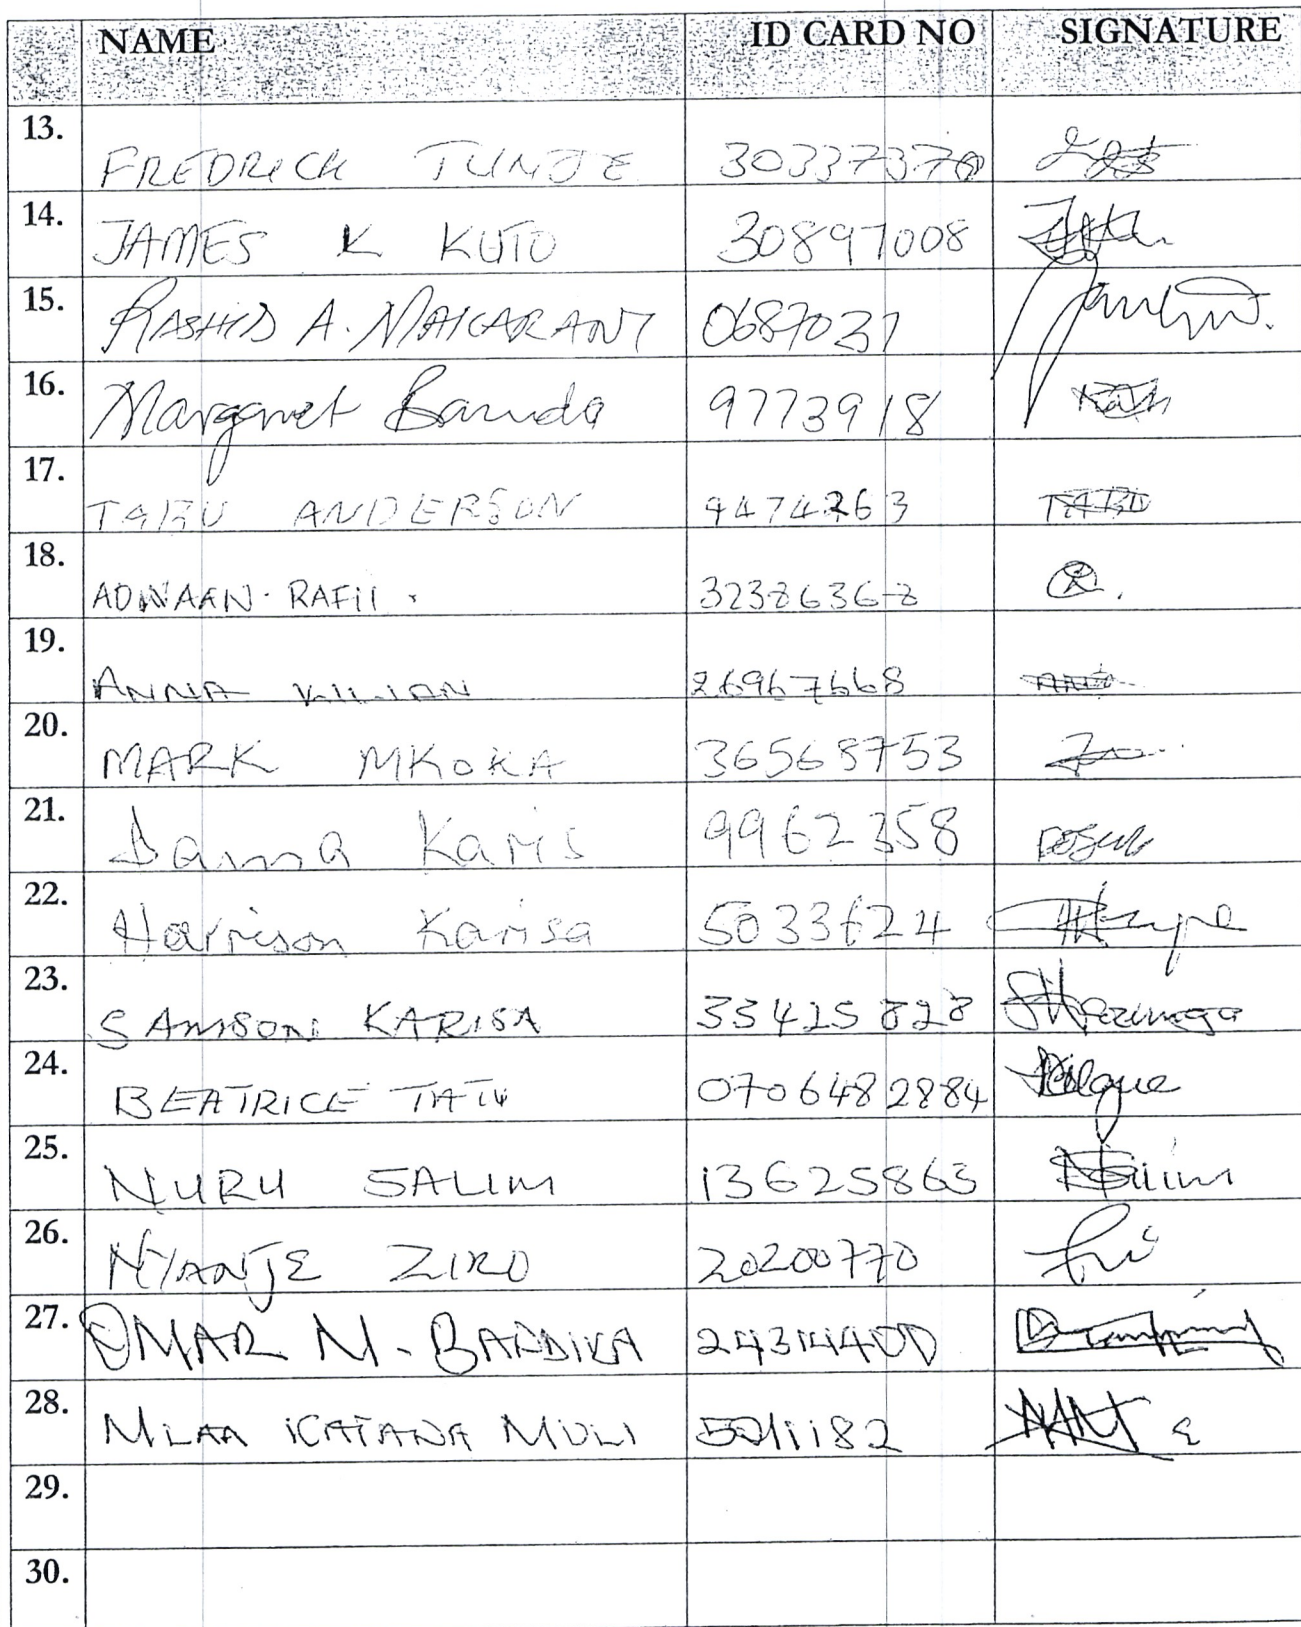 NAME ID CARD NO SIGNATURE
13. FREDRICK TUNJE 30337370
14. JAMES K KUTO 30897008
15. RASHID A. MAKARANI 0687031
16. Margaret Banda 9773918
17. TABU ANDERSON 9474263 TABU
18. ADNAAN. RAFII. 32386368 R.
19. ANNA KILIAN 26967668
20. MARK MKOKA 36568753
21. Dama Karis 9962358
22. Harrison Karisa 5033624
23. SAMSON KARISA 33425828
24. BEATRICE TATU 0706482884
25. NURU SALIM 13625863
26. NYANJE ZIRO 20200770
27. OMAR M. BARDIKA 24314400
28. MLAA KATANA MULI 5011182
29.
30.